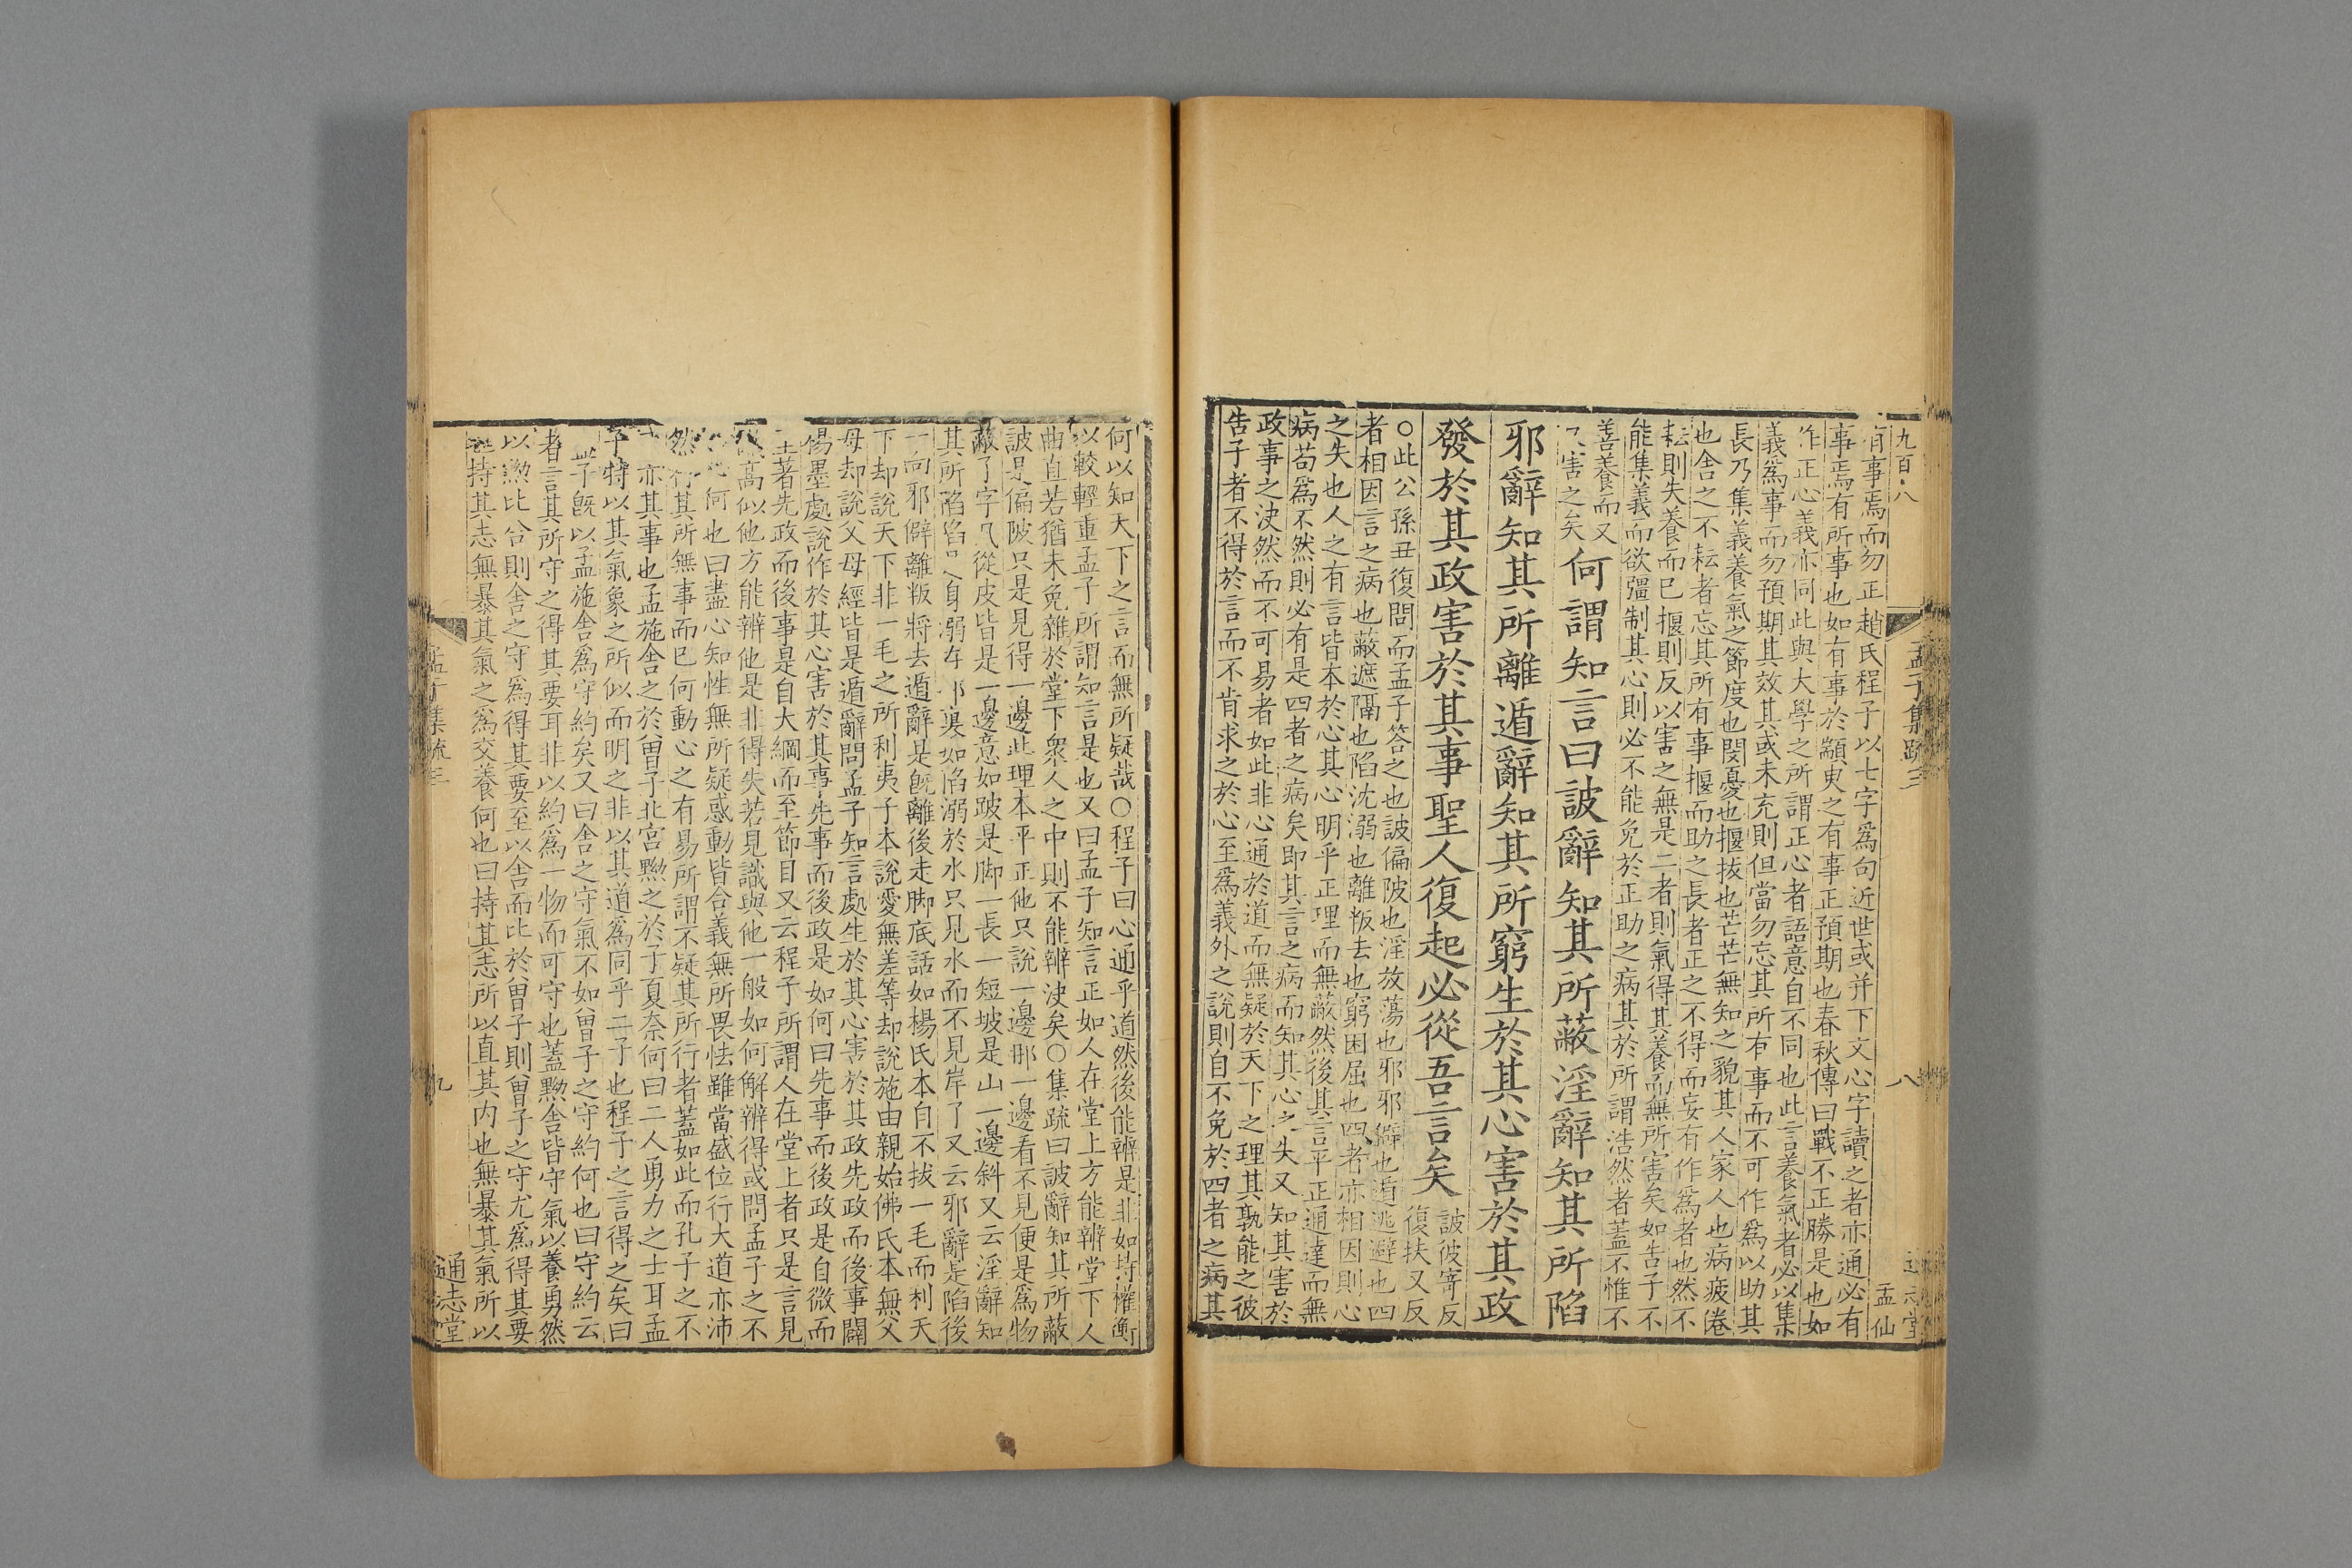 九百八
孟子集疏三
八
孟仙
有事焉而勿正趙氏程子以七字為句近世或并下文心字讀之者亦通必有
事焉有所事也如有事於顓臾之有事正預期也春秋傳曰戰不正勝是也如
作正心義亦同此與大學之所謂正心者語意自不同也此言養氣者必以集
義為事而勿預期其效其或未充則但當勿忘其所有事而不可作為以助其
長乃集義養氣之節度也閔憂也揠拔也芒芒無知之貌其人家人也病疲倦
也舍之不耘者忘其所有事揠而助之長者正之不得而妄有作為者也然不
耘則失養而已揠則反以害之無是二者則氣得其養而無所害矣如告子不
能集義而欲彊制其心則必不能免於正助之病其於所謂浩然者蓋不惟不
善養而又
害之矣
何謂知言曰詖辭知其所蔽淫辭知其所陷
邪辭知其所離遁辭知其所窮生於其心害於其政
發於其政害於其事聖人復起必從吾言矣
詖彼寄反
復扶又反
○此公孫丑復問而孟子答之也詖偏陂也淫放蕩也邪邪僻也遁逃避也四
者相因言之病也蔽遮隔也陷沈溺也離叛去也窮困屈也四者亦相因則心
之失也人之有言皆本於心其心明乎正理而無蔽然後其言平正通達而無
病苟為不然則必有是四者之病矣即其言之病而知其心之失又知其害於
政事之決然而不可易者如此非心通於道而無疑於天下之理其孰能之彼
告子者不得於言而不肯求之於心至為義外之說則自不免於四者之病其
何以知天下之言而無所疑哉○程子曰心通乎道然後能辨是非如持權衡
以較輕重孟子所謂知言是也又曰孟子知言正如人在堂上方能辨堂下人
曲直若猶未免雜於堂下衆人之中則不能辨決矣○集疏曰詖辭知其所蔽
詖是偏陂只是見得一邊此理本平正他只說一邊那一邊看不見便是為物
蔽了字凡從皮皆是一邊意如跛是脚一長一短坡是山一邊斜又云淫辭知
其所陷陷身溺在裏如陷溺於水只見水而不見岸了又云邪辭是陷後
一向邪僻離叛將去遁辭是既離後走脚底話如楊氏本自不拔一毛而利天
下却說天下非一毛之所利夷子本說愛無差等却說施由親始佛氏本無父
母却說父母經皆是遁辭問孟子知言處生於其心害於其政先政而後事闢
楊墨處說作於其心害於其事先事而後政是如何曰先事而後政是自微而
至著先政而後事是自大綱而至節目又云程子所謂人在堂上者只是言見
識高似他方能辨他是非得失若見識與他一般如何解辨得或問孟子之不
何也曰盡心知性無所疑惑動皆合義無所畏怯雖當盛位行大道亦沛
然行其所無事而已何動心之有易所謂不疑其所行者蓋如此而孔子之不
亦其事也孟施舍之於曾子北宮黝之於子夏奈何曰二人勇力之士耳孟
子特以其氣象之所似而明之非以其道為同乎二子也程子之言得之矣曰
孟子旣以孟施舍為守約矣又曰舍之守氣不如曾子之守約何也曰守約云
者言其所守之得其要耳非以約為一物而可守也蓋黝舍皆守氣以養勇然
以黝比舍則舍之守為得其要至以舍而比於曾子則曾子之守尤為得其要
也持其志無暴其氣之為交養何也曰持其志所以直其內也無暴其氣所以
孟子集疏三
九
通志堂